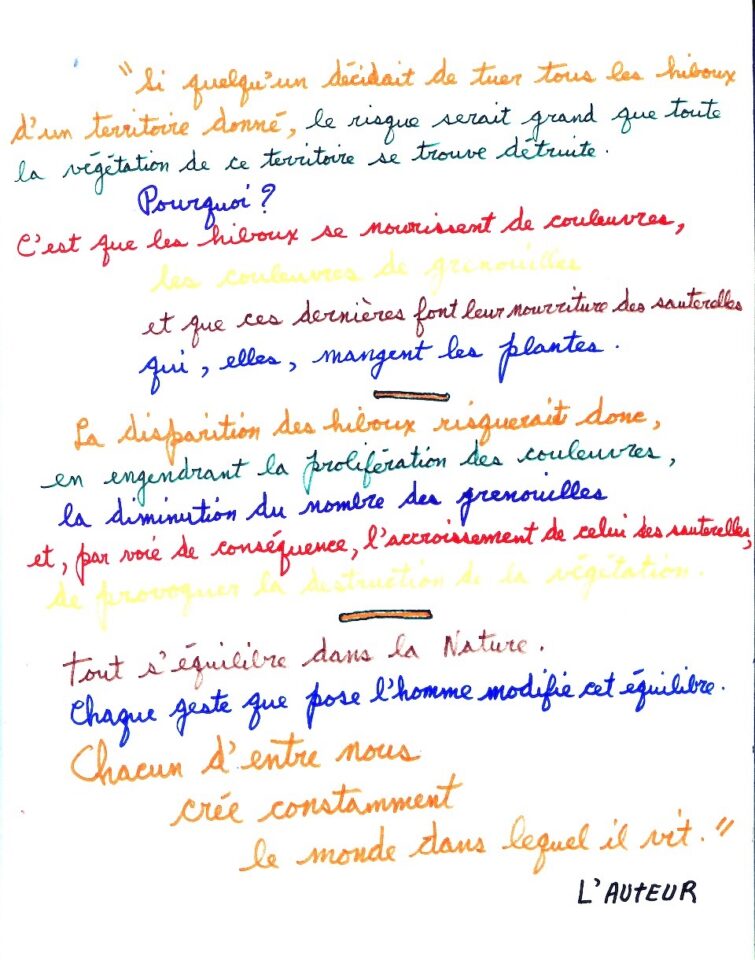 "Si quelqu'un décidait de tuer tous les hiboux
d'un territoire donné, le risque serait grand que toute
la végétation de ce territoire se trouve détruite.
Pourquoi?
C'est que les hiboux se nourissent de couleuvres,
les couleuvres de grenouilles
et que ces dernières font leur nourriture des sauterelles
qui, elles, mangent les plantes.
La disparition des hiboux risquerait donc,
en engendrant la prolifération des couleuvres,
la diminution du nombre des grenouilles
et, par voie de conséquence, l'accroissement de celui des sauterelles,
de provoquer la destruction de la végétation.
Tout s'équilibre dans la Nature.
Chaque geste que pose l'homme modifie cet équilibre.
Chacun d'entre nous
crée constamment
le monde dans lequel il vit."
L'AUTEUR